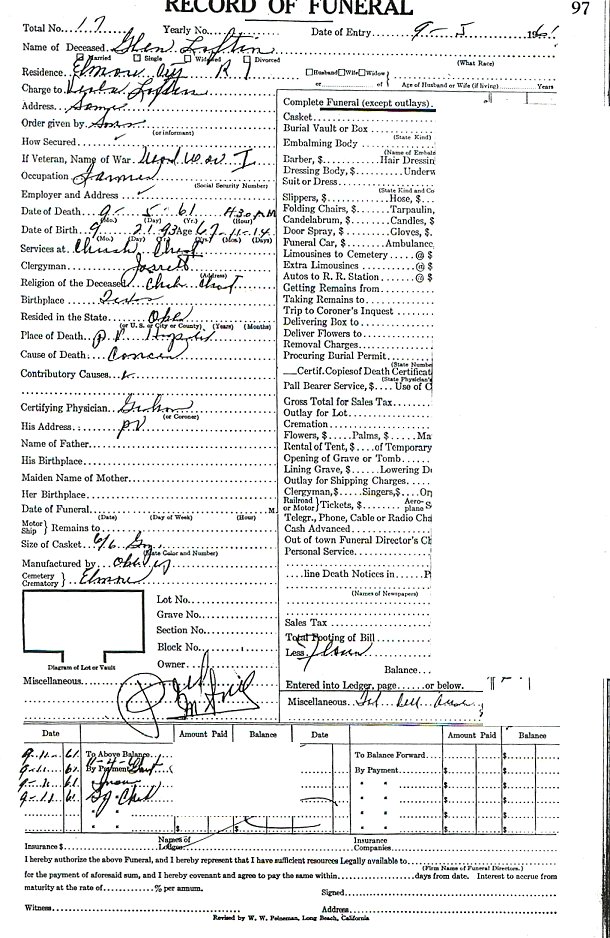 RECORD OF FUNERAL
97
Total No. 17 Yearly No. Date of Entry 9- 5 1961
Name of Deceased Glen Loftin
Married Single Widowed Divorced (What Race)
Residence Elmore City R 1 Husband Wife Widow
or Age of Husband or Wife (if living) Years
Charge to Loftin
Address Same
Order given by Sons
(or informant)
How Secured
If Veteran, Name of War World War I
Occupation Farmer
(Social Security Number)
Employer and Address
Date of Death 9- 5- 61 4:30 P.M
(Mo.) (Day) (Yr.) (Hour)
Date of Birth 9 21 93 Age 67-11-14
(Mo.) (Day) (Yr.) (Yrs.) (Mos.) (Days)
Services at Church Christ
Clergyman Jarrett
(Address)
Religion of the Deceased Church Christ
Birthplace Texas
Resided in the State Okla
(or U. S. or City or County) (Years) (Months)
Place of Death P V Hospital
Cause of Death Cancer
Contributory Causes
Certifying Physician
(or Coroner)
His Address PV
Name of Father
His Birthplace
Maiden Name of Mother
Her Birthplace
Date of Funeral M.
(Date) (Day of Week) (Hour)
Motor Ship } Remains to
Size of Casket 6/6
(State Color and Number)
Manufactured by
Cemetery Crematory } Elmore
Lot No.
Grave No.
Section No.
Block No.
Owner
Diagram of Lot or Vault
Miscellaneous
Complete Funeral (except outlays)
Casket
Burial Vault or Box
(State Kind)
Embalming Body
(Name of Embal
Barber, $ Hair Dressin
Dressing Body, $ Underw
Suit or Dress
(State Kind and Co
Slippers, $ Hose, $
Folding Chairs, $ Tarpaulin,
Candelabrum, $ Candles, $
Door Spray, $ Gloves, $
Funeral Car, $ Ambulance
Limousines to Cemetery @ $
Extra Limousines @ $
Autos to R. R. Station @ $
Getting Remains from
Taking Remains to
Trip to Coroner's Inquest
Delivering Box to
Deliver Flowers to
Removal Charges
Procuring Burial Permit
(State Numbe
Certif. Copies of Death Certificat
(State Physician's
Pall Bearer Service, $ Use of C
Gross Total for Sales Tax
Outlay for Lot
Cremation
Flowers, $ Palms, $ Ma
Rental of Tent, $ of Temporary
Opening of Grave or Tomb
Lining Grave, $ Lowering De
Outlay for Shipping Charges
Clergyman, $ Singers, $ Or
Railroad or Motor } Tickets, $ Aeroplane S
Telegr., Phone, Cable or Radio Cha
Cash Advanced
Out of town Funeral Director's Ch
Personal Service
line Death Notices in P
(Names of Newspapers)
Sales Tax
Total Footing of Bill
Less
Balance
Entered into Ledger, page or below.
Miscellaneous
Date Amount Paid Balance Date Amount Paid Balance
9-11- 61 To Above Balance $ To Balance Forward $ $
9-11- 61 By Payment By Payment $ $
9-11 61 " " $ $
9-11 61 " " $ $
" " $ $
" " $ $ " " $ $
Insurance $ Names of Lodges Insurance Companies
I hereby authorize the above Funeral, and I hereby represent that I have sufficient resources Legally available to
(Firm Name of Funeral Directors.)
for the payment of aforesaid sum, and I hereby covenant and agree to pay the same within days from date. Interest to accrue from
maturity at the rate of % per annum. Signed
Witness Address
Revised by W. W. Feineman, Long Beach, California